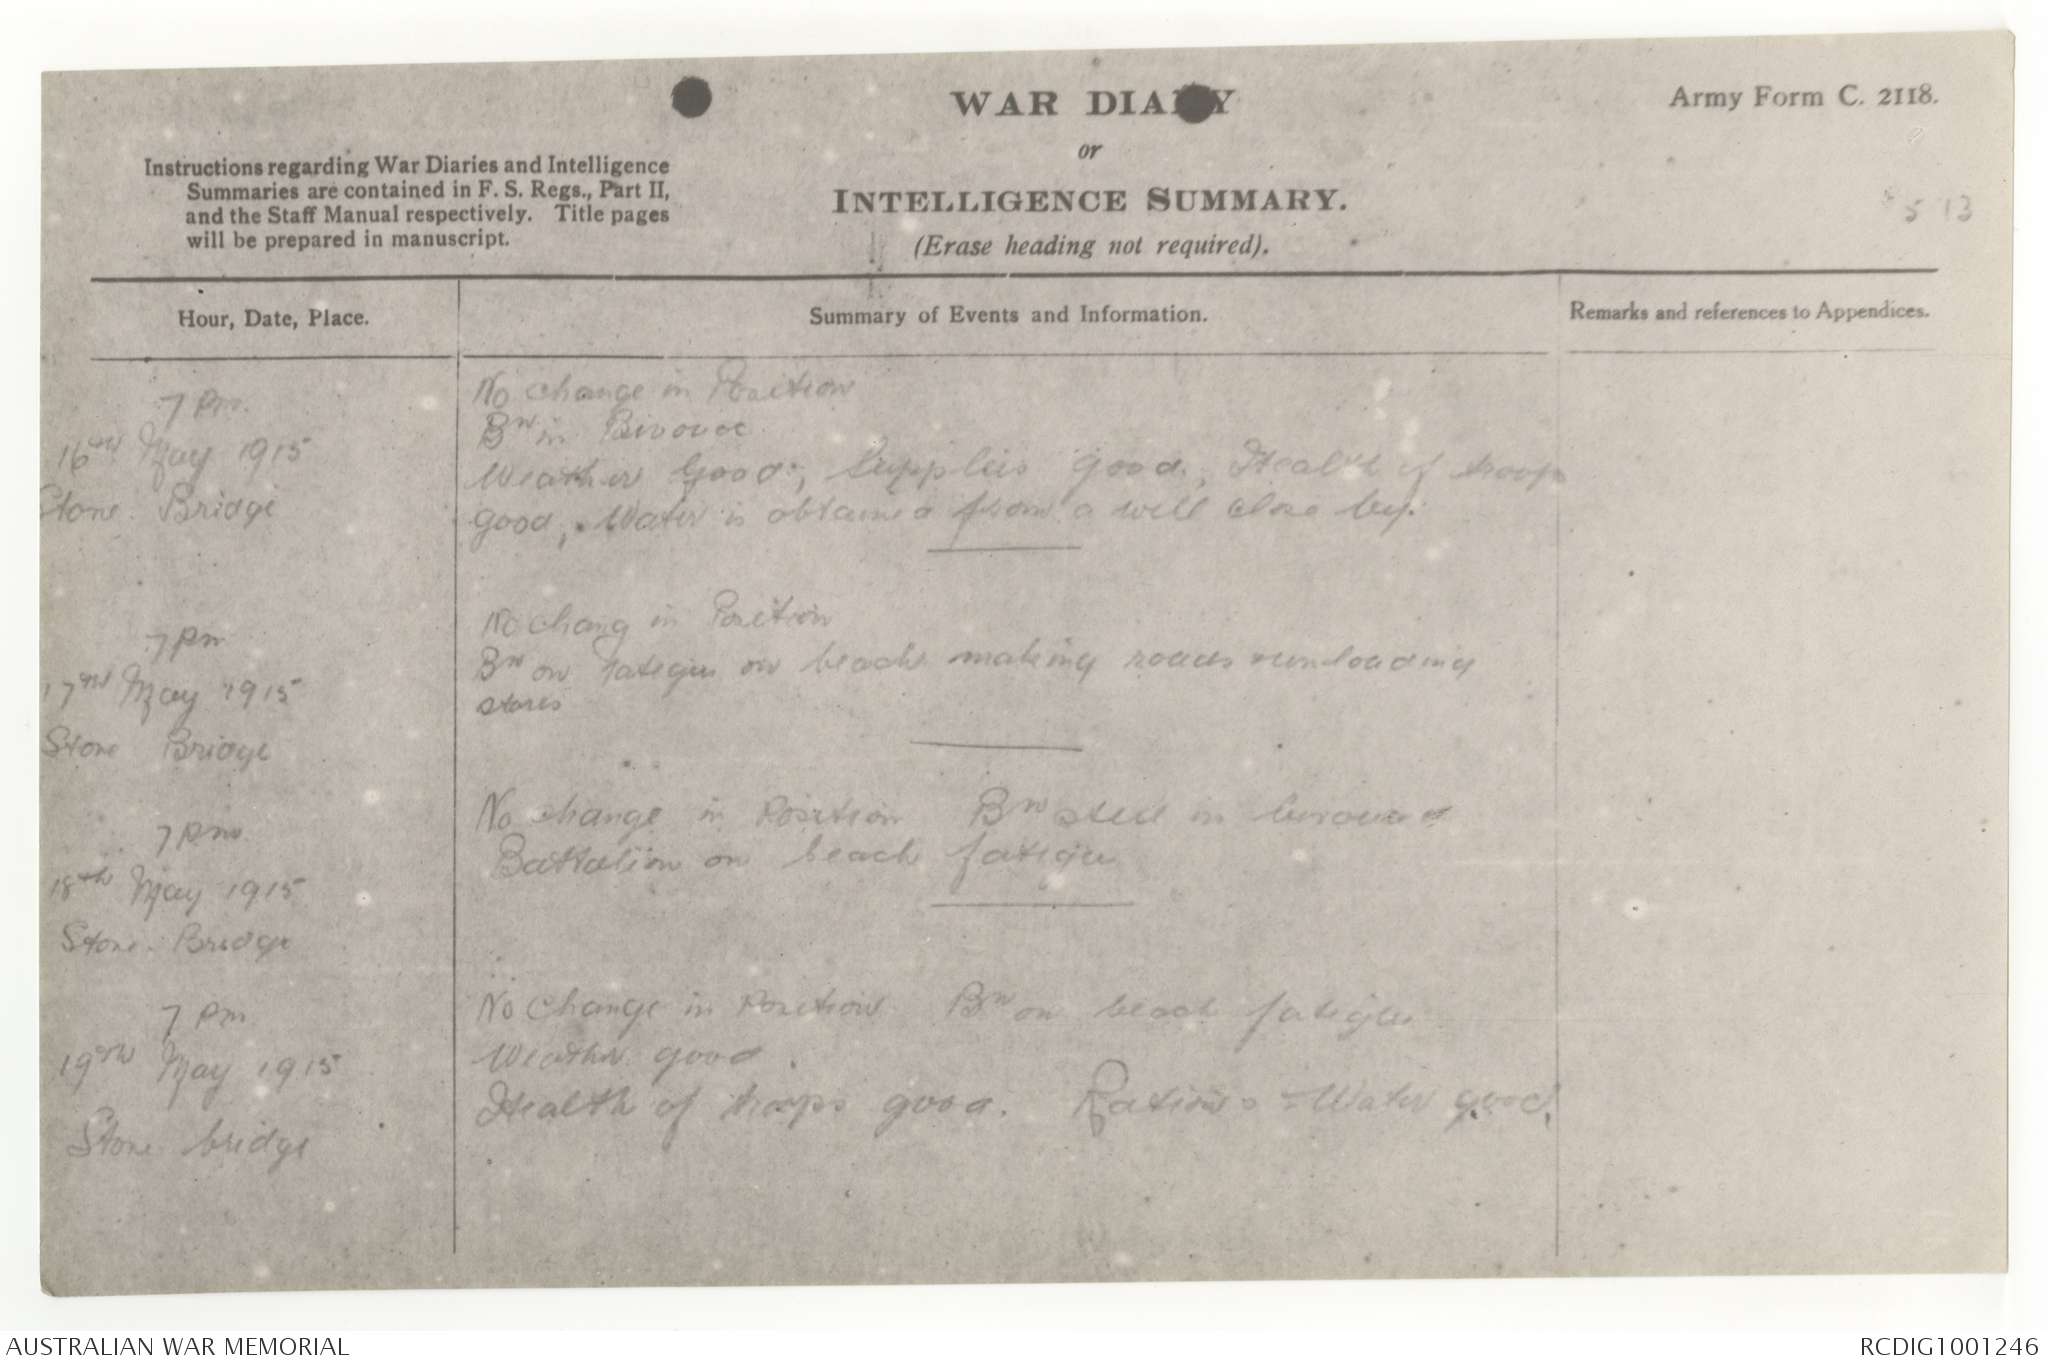 WAR DIARY
or
INTELLIGENCE SUMMARY.
(Erase heading not required).
Army Form C. 2118.
Instructions regarding War Diaries and Intelligence
Summaries are contained in F. S. Regs., Part II,
and the Staff Manual respectively. Title pages
will be prepared in manuscript.
5 13
Hour, Date, Place.
Summary of Events and Information.
Remarks and references to Appendices.
7 pm
16th May 1915
Stone Bridge
No change in Position
Bn in Bivouac
Weather Good; Supplies good, Health of troops
good, Water is obtained from a well close by.
7 pm
17th May 1915
Stone Bridge
No chang in Position
Bn on fatigue on beach making roads & unloading
stores
7 pm
18th May 1915
Stone Bridge
No change in Position Bn still in bivouac
Battalion on beach fatigue
7 pm
19th May 1915
Stone bridge
No Change in Position Bn on beach fatigue
Weather good.
Health of troops good. Rations & Water good.
AUSTRALIAN WAR MEMORIAL
RCDIG1001246